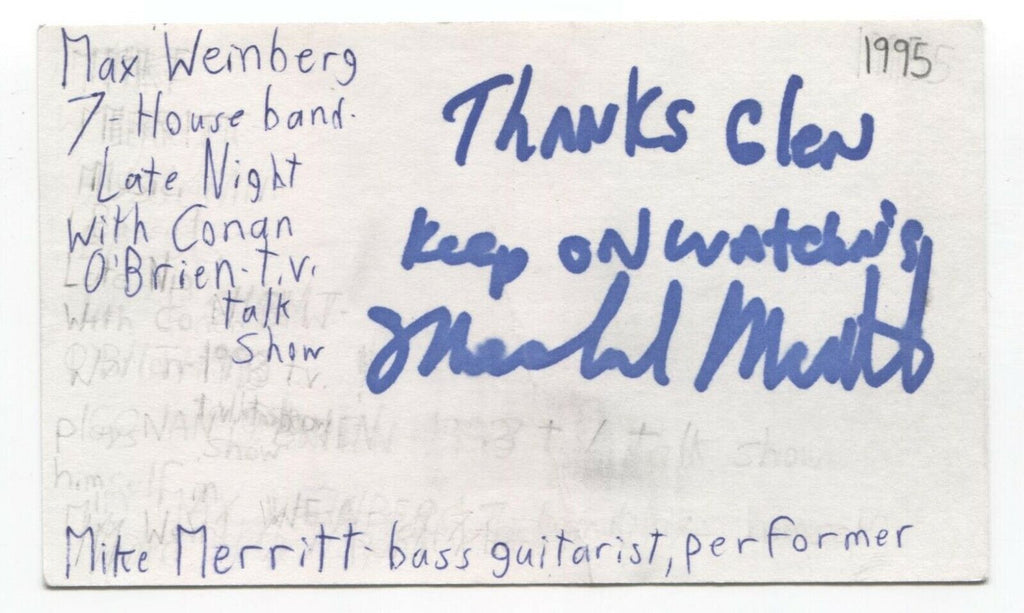 Max Weinberg
7-House band.
Late Night
With Conan
O'Brien-T.V.
talk
show
1995
Thanks Glen
Keep ON WatchiNg
Michael Merritt
Mike Merritt-bass guitarist, performer